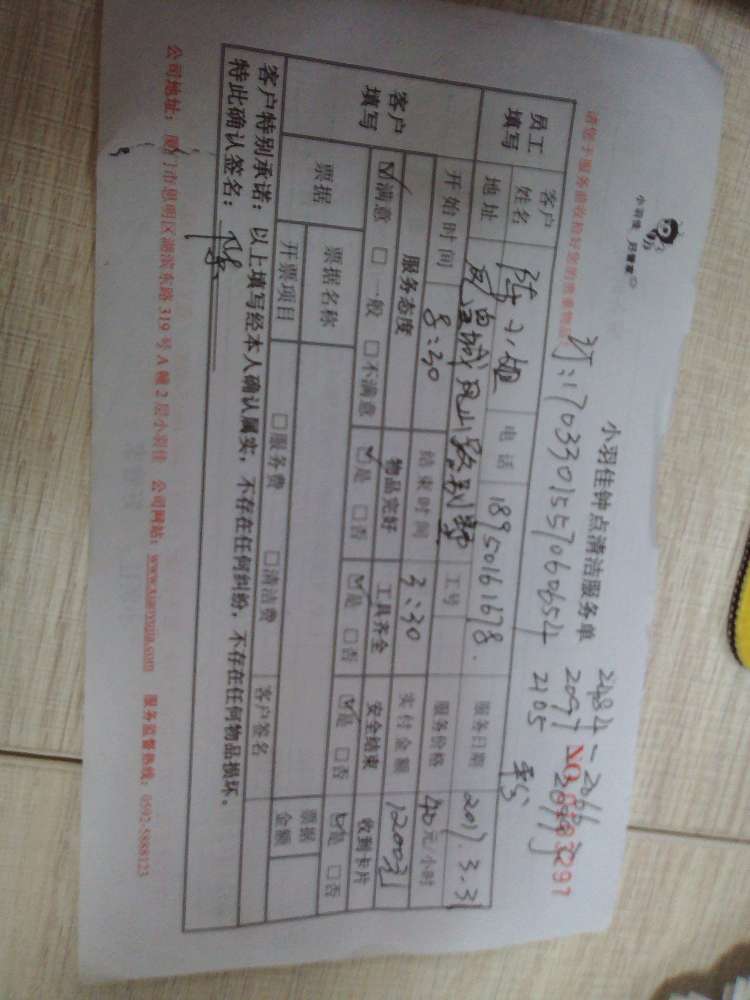 小羽佳 月管家
小羽佳钟点清洁服务单
请您于服务前收捡好您的贵重物品
员工填写
客户姓名 陈小姐 电话 18950161678. 服务日期 2017.3.31
地址 工号 服务价格 40元/小时
客户填写
开始时间 8:30 结束时间 3:30 实付金额 1200元
服务态度 物品完好 工具齐全 安全结束 收到卡片
☑满意 □一般 □不满意 ☑是 □否 ☑是 □否 ☑是 □否 ☑是 □否
票据 票据名称 票据金额
开票项目 □服务费 □清洁费 客户签名
客户特别承诺:以上填写经本人确认属实,不存在任何纠纷,不存在任何物品损坏。
特此确认签名:
公司地址:厦门市思明区湖滨东路319号A幢2层小羽佳 公司网站:www.xiaoyujia.com 服务监督热线:0592-5888123